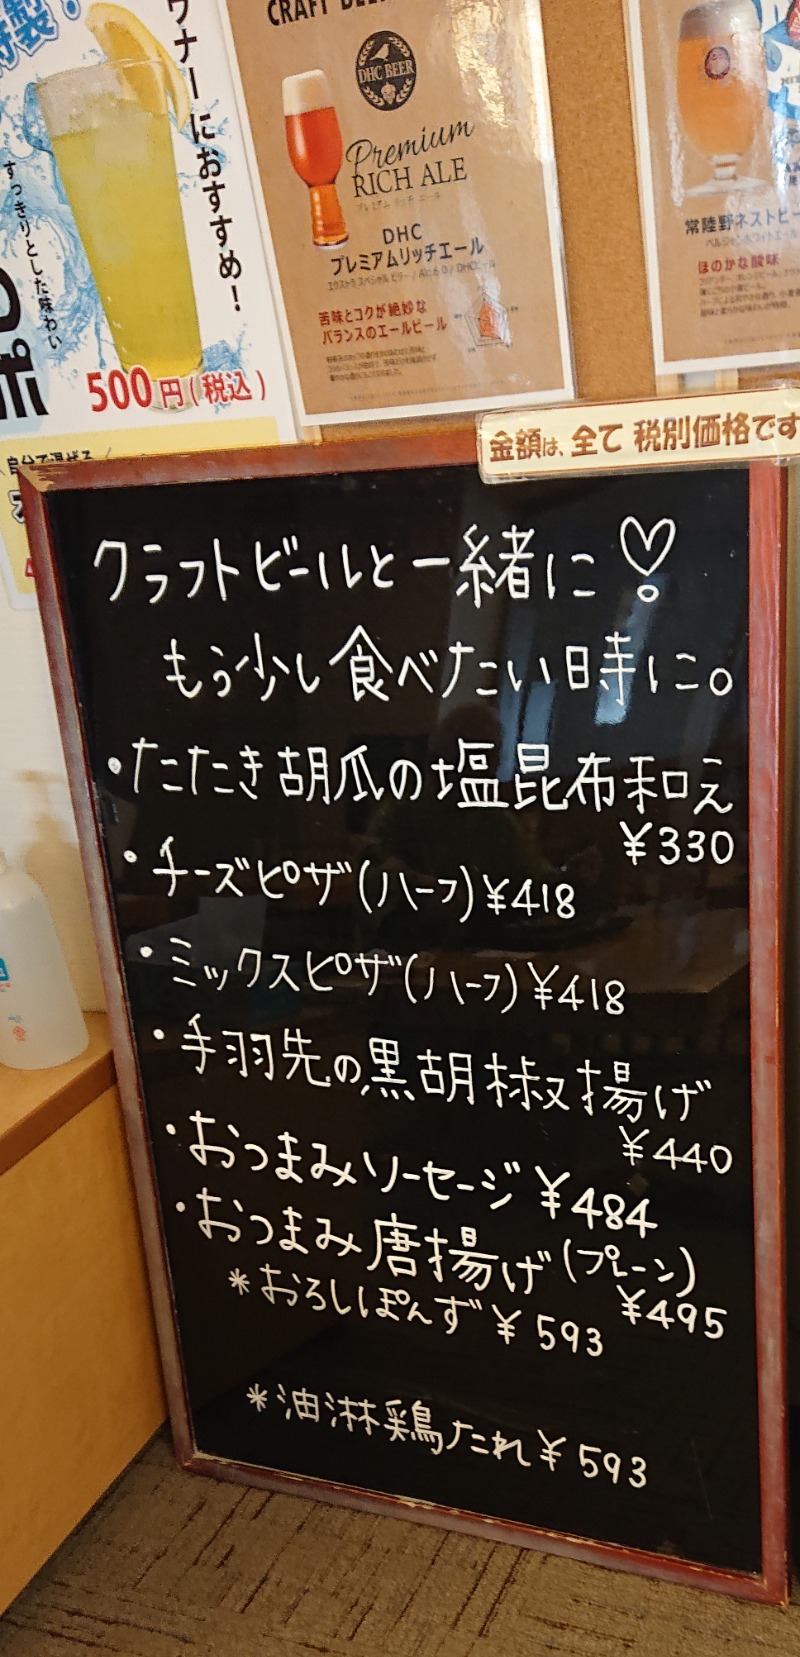 特製!
ワナーにおすすめ!
すっきりとした味わい
500円(税込)
自分で混ぜる
CRAFT BEER
DHC BEER
Premium
RICH ALE
プレミアム リッチ エール
DHC
プレミアムリッチエール
エクストラ スペシャル ビター / Alc.6.0 / DHCビール
苦味とコクが絶妙な
バランスのエールビール
常陸野ネストビー
ベルジャンホワイトエール
ほのかな酸味
金額は、全て 税別価格です
クラフトビールと一緒に♡
もう少し食べたい時に。
・たたき胡瓜の塩昆布和え
¥330
・チーズピザ(ハーフ)¥418
・ミックスピザ(ハーフ)¥418
・手羽先の黒胡椒揚げ
¥440
・おつまみソーセージ ¥484
・おつまみ唐揚げ(プレーン)
¥495
*おろしぽんず ¥593
*油淋鶏たれ ¥593